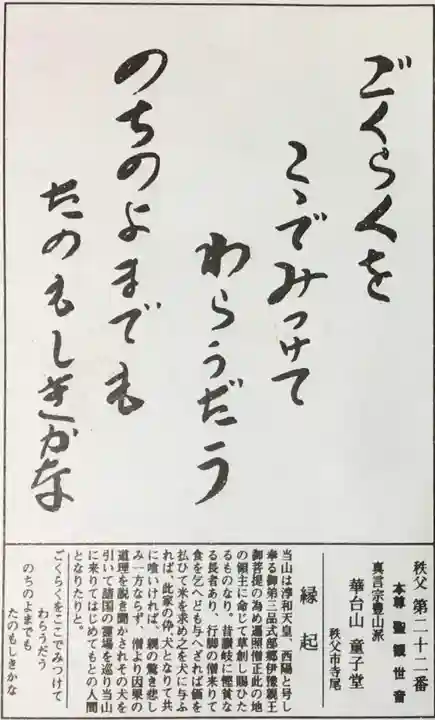 ごくらくを
こゝでみつけて
わらうだう
のちのよまでも
たのもしきかな
秩父 第二十二番
本尊 聖観世音
真言宗豊山派
華台山 童子堂
秩父市寺尾
縁起
当山は淳和天皇、西陽と号し
奉る御第三品式部郷伊豫親王
御菩提の為め遍照僧正此の地
の領主に命じて草創し賜ひた
るものなり。昔讃岐に慳貪な
る長者あり、行脚の僧来りて
食を乞へども与へざれば価を
払ひて米を求め之を犬に与ふ
れば、此家の伜、犬となりて共
に喰いければ、親の驚き悲し
み一方ならず、僧より因果の
道理を説き聞かされその犬を
引いて諸国の霊場を巡り当山
に来りてはじめてもとの人間
となりたりと。
ごくらくをここでみつけて
わらうだう
のちのよまでも
たのもしきかな